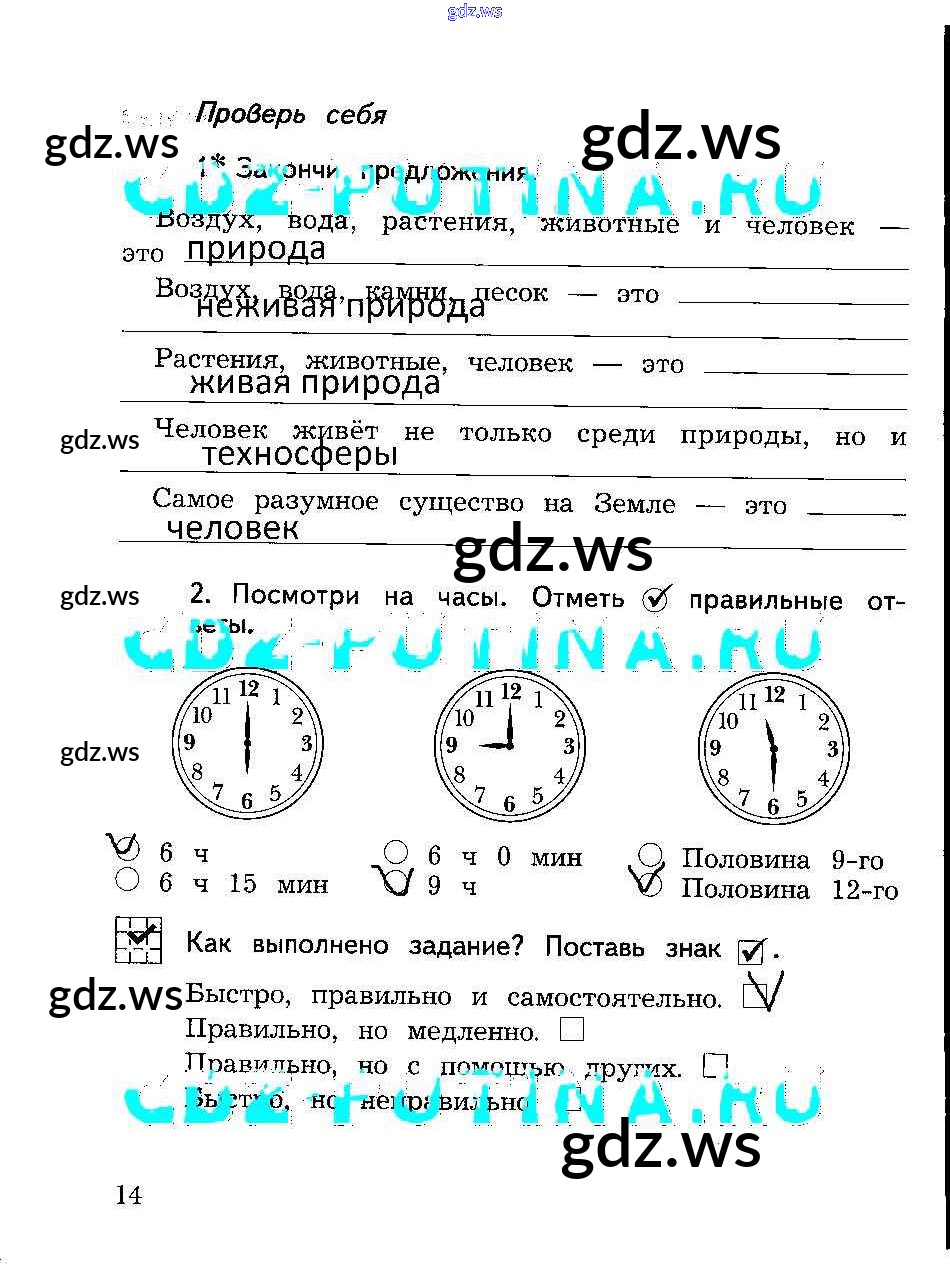 gdz.ws
Проверь себя
gdz.ws gdz.ws
1* Закончи предложения.
GDZ-PUTINA.RU
Воздух, вода, растения, животные и человек —
это природа
Воздух, вода, камни, песок — это
неживая природа
Растения, животные, человек — это
живая природа
gdz.ws
Человек живёт не только среди природы, но и
техносферы
Самое разумное существо на Земле — это
человек
gdz.ws
gdz.ws
2. Посмотри на часы. Отметь правильные от-
веты.
GDZ-PUTINA.RU
11 12 1 10 2 9 3 8 4 7 6 5
11 12 1 10 2 9 3 8 4 7 6 5
11 12 1 10 2 9 3 8 4 7 6 5
gdz.ws
6 ч 6 ч 0 мин Половина 9-го
6 ч 15 мин 9 ч Половина 12-го
Как выполнено задание? Поставь знак .
gdz.ws
Быстро, правильно и самостоятельно.
Правильно, но медленно.
Правильно, но с помощью других.
Быстро, но неправильно
GDZ-PUTINA.RU
gdz.ws
14